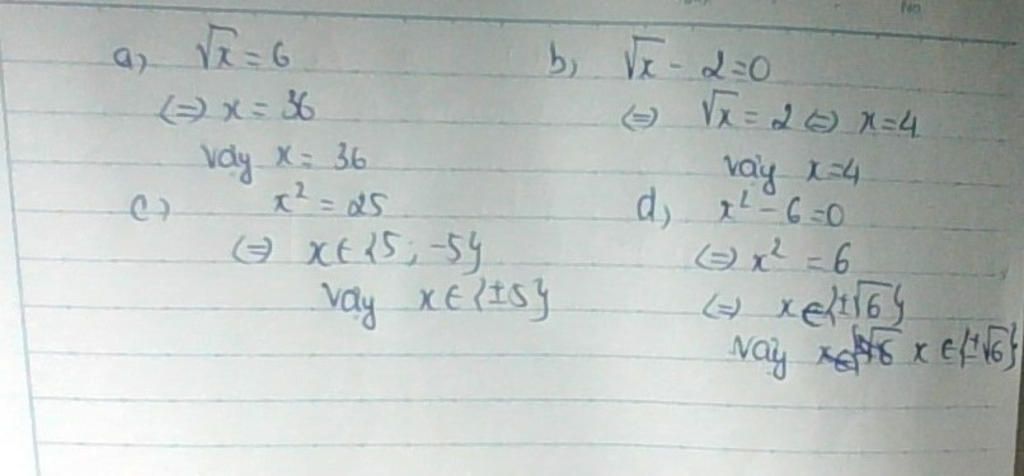 a) √x = 6
<=> x = 36
Vậy x = 36
b) √x - 2 = 0
<=> √x = 2 <=> x = 4
Vậy x = 4
c) x² = 25
<=> x ∈ {5; -5}
Vậy x ∈ {±5}
d) x² - 6 = 0
<=> x² = 6
<=> x ∈ {±√6}
Vậy x ∈ {±√6}